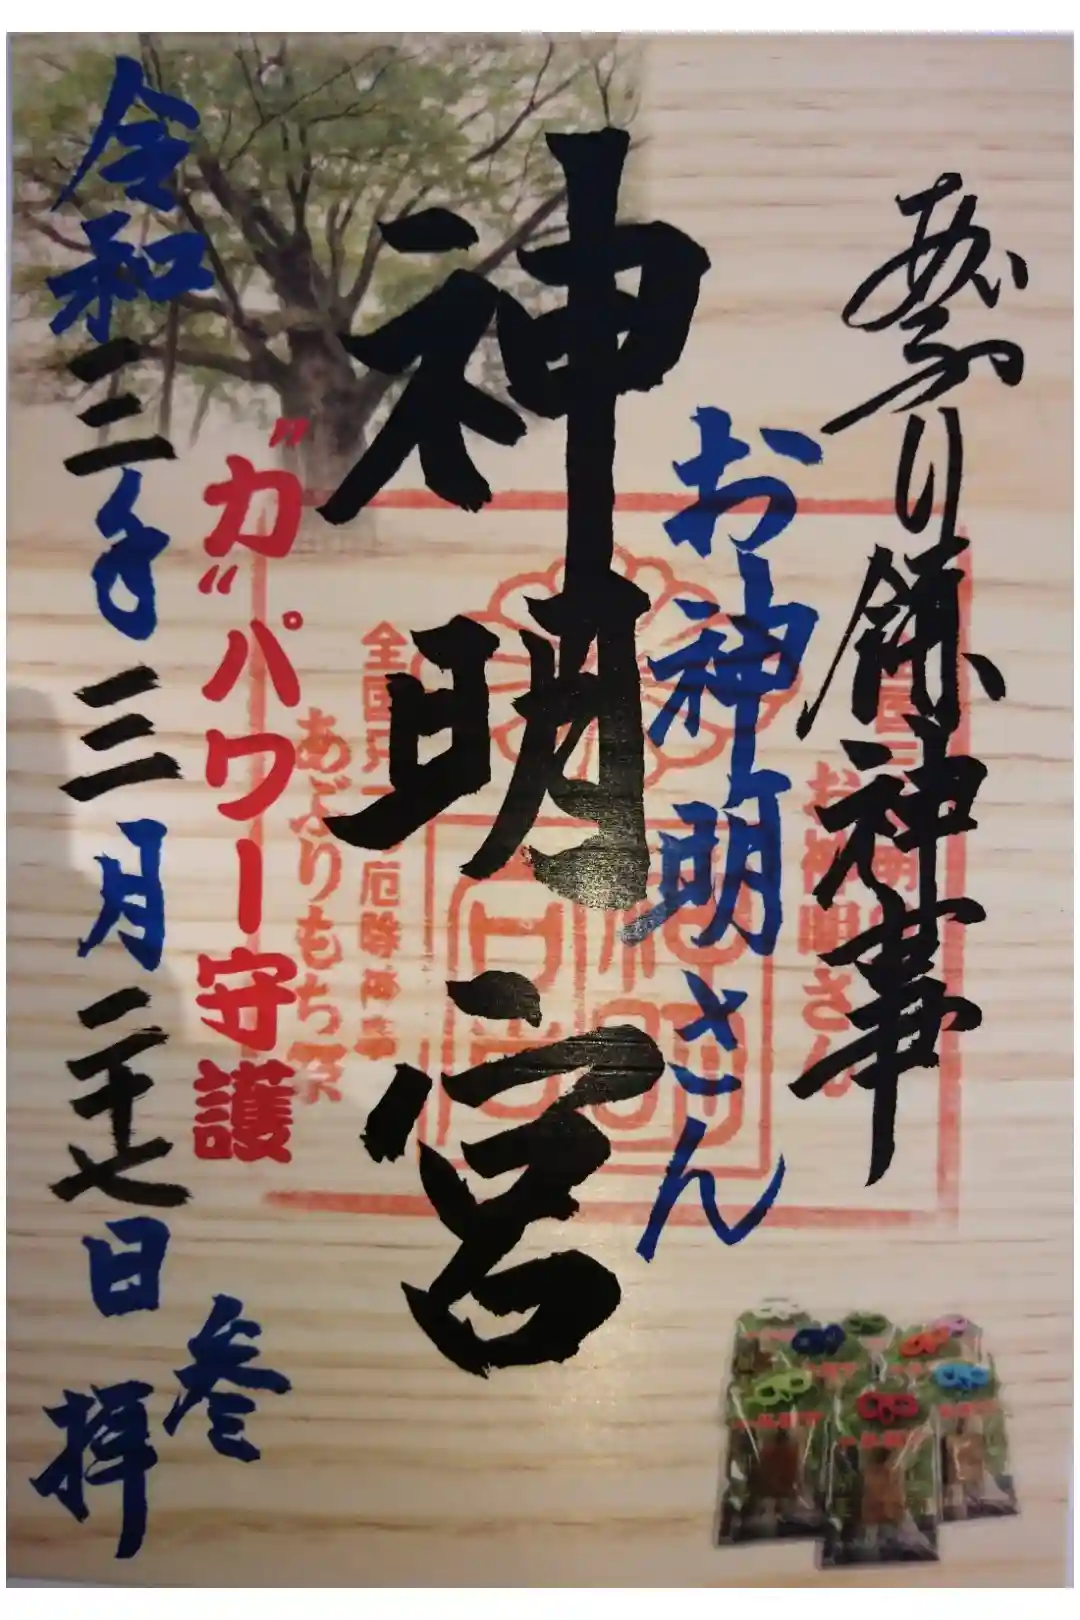 あぶり餅神事
お神明さん
神明宮
"力"パワー守護
令和三年三月二十七日
参拝
お神明さん
全国唯一厄除神事
あぶりもち祭